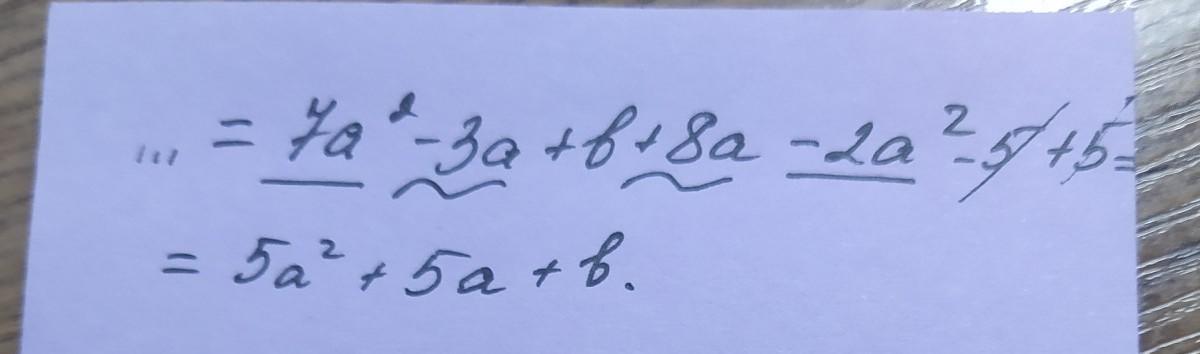 ... = 7a² - 3a + b + 8a - 2a² - 5 + 5 =
= 5a² + 5a + b.